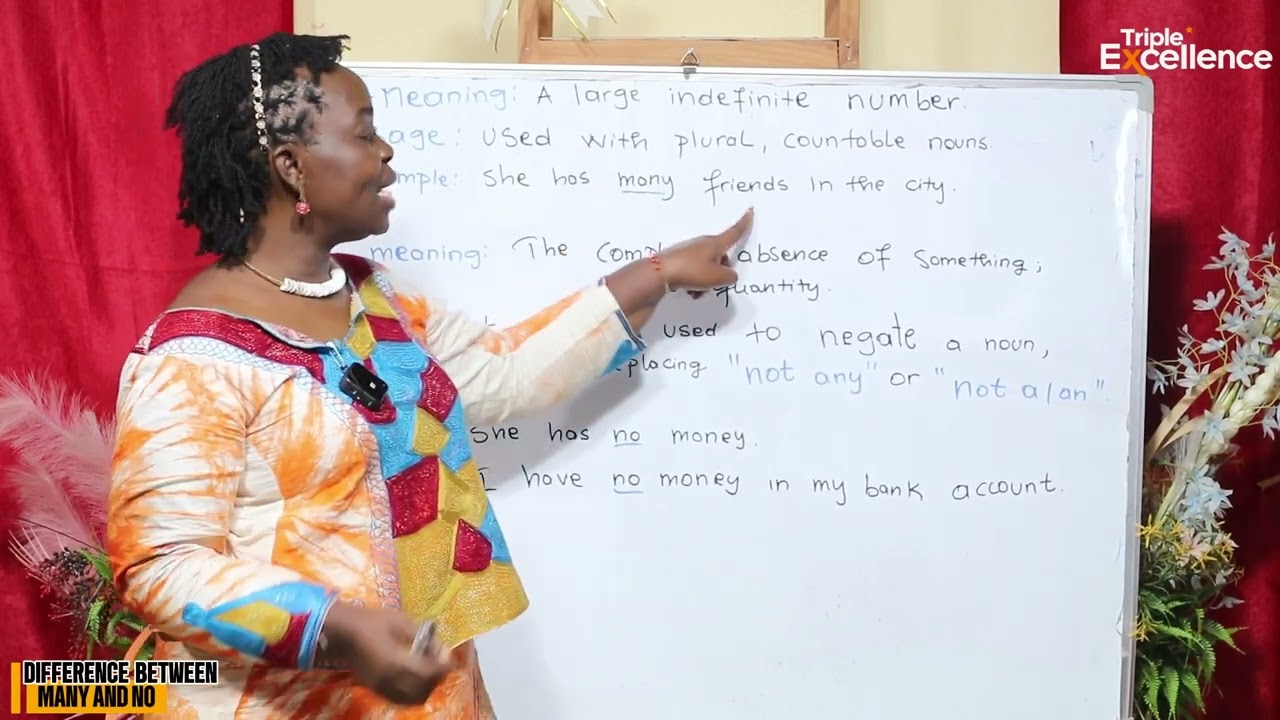 Triple
Excellence
meaning: A large indefinite number.
age: used with plural, countable nouns.
mple: She has many friends in the city.
meaning: The absence of something;
quantity.
used to negate a noun,
placing "not any" or "not a/an".
She has no money.
I have no money in my bank account.
DIFFERENCE BETWEEN
MANY AND NO